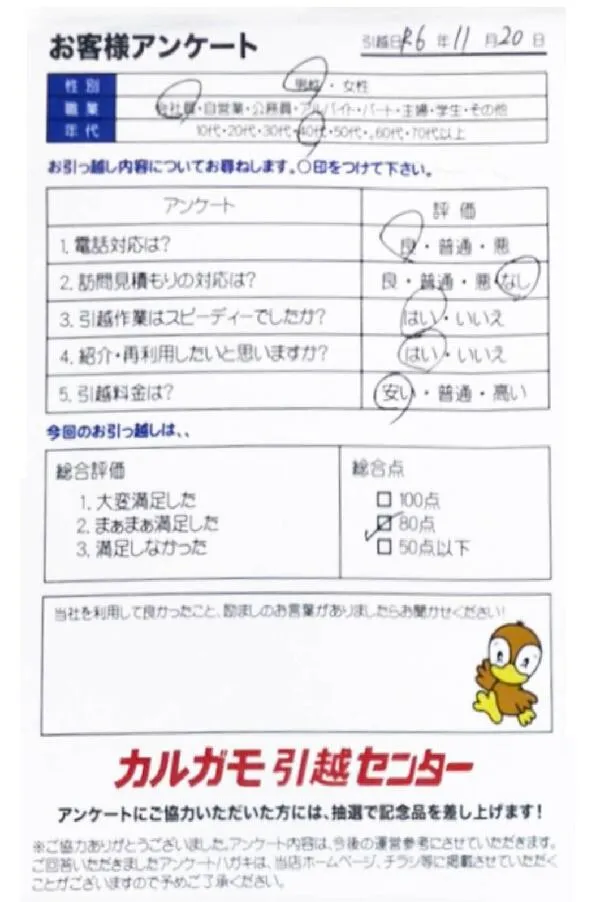 お客様アンケート
引越日R6年11月20日
性別 男性・女性
職業 会社員・自営業・公務員・アルバイト・パート・主婦・学生・その他
年代 10代・20代・30代・40代・50代・60代・70代以上
お引っ越し内容についてお尋ねします。○印をつけて下さい。
アンケート 評価
1. 電話対応は? 良・普通・悪
2. 訪問見積もりの対応は? 良・普通・悪・なし
3. 引越作業はスピーディーでしたか? はい・いいえ
4. 紹介・再利用したいと思いますか? はい・いいえ
5. 引越料金は? 安い・普通・高い
今回のお引っ越しは、、
総合評価
1. 大変満足した
2. まぁまぁ満足した
3. 満足しなかった
総合点
□ 100点
☑ 80点
□ 50点以下
当社を利用して良かったこと、励ましのお言葉がありましたらお聞かせください!
カルガモ引越センター
アンケートにご協力いただいた方には、抽選で記念品を差し上げます!
※ご協力ありがとうございました。アンケート内容は、今後の運営参考にさせていただきます。
ご回答いただきましたアンケートハガキは、当店ホームページ、チラシ等に掲載させていただく
ことがございますので予めご了承ください。